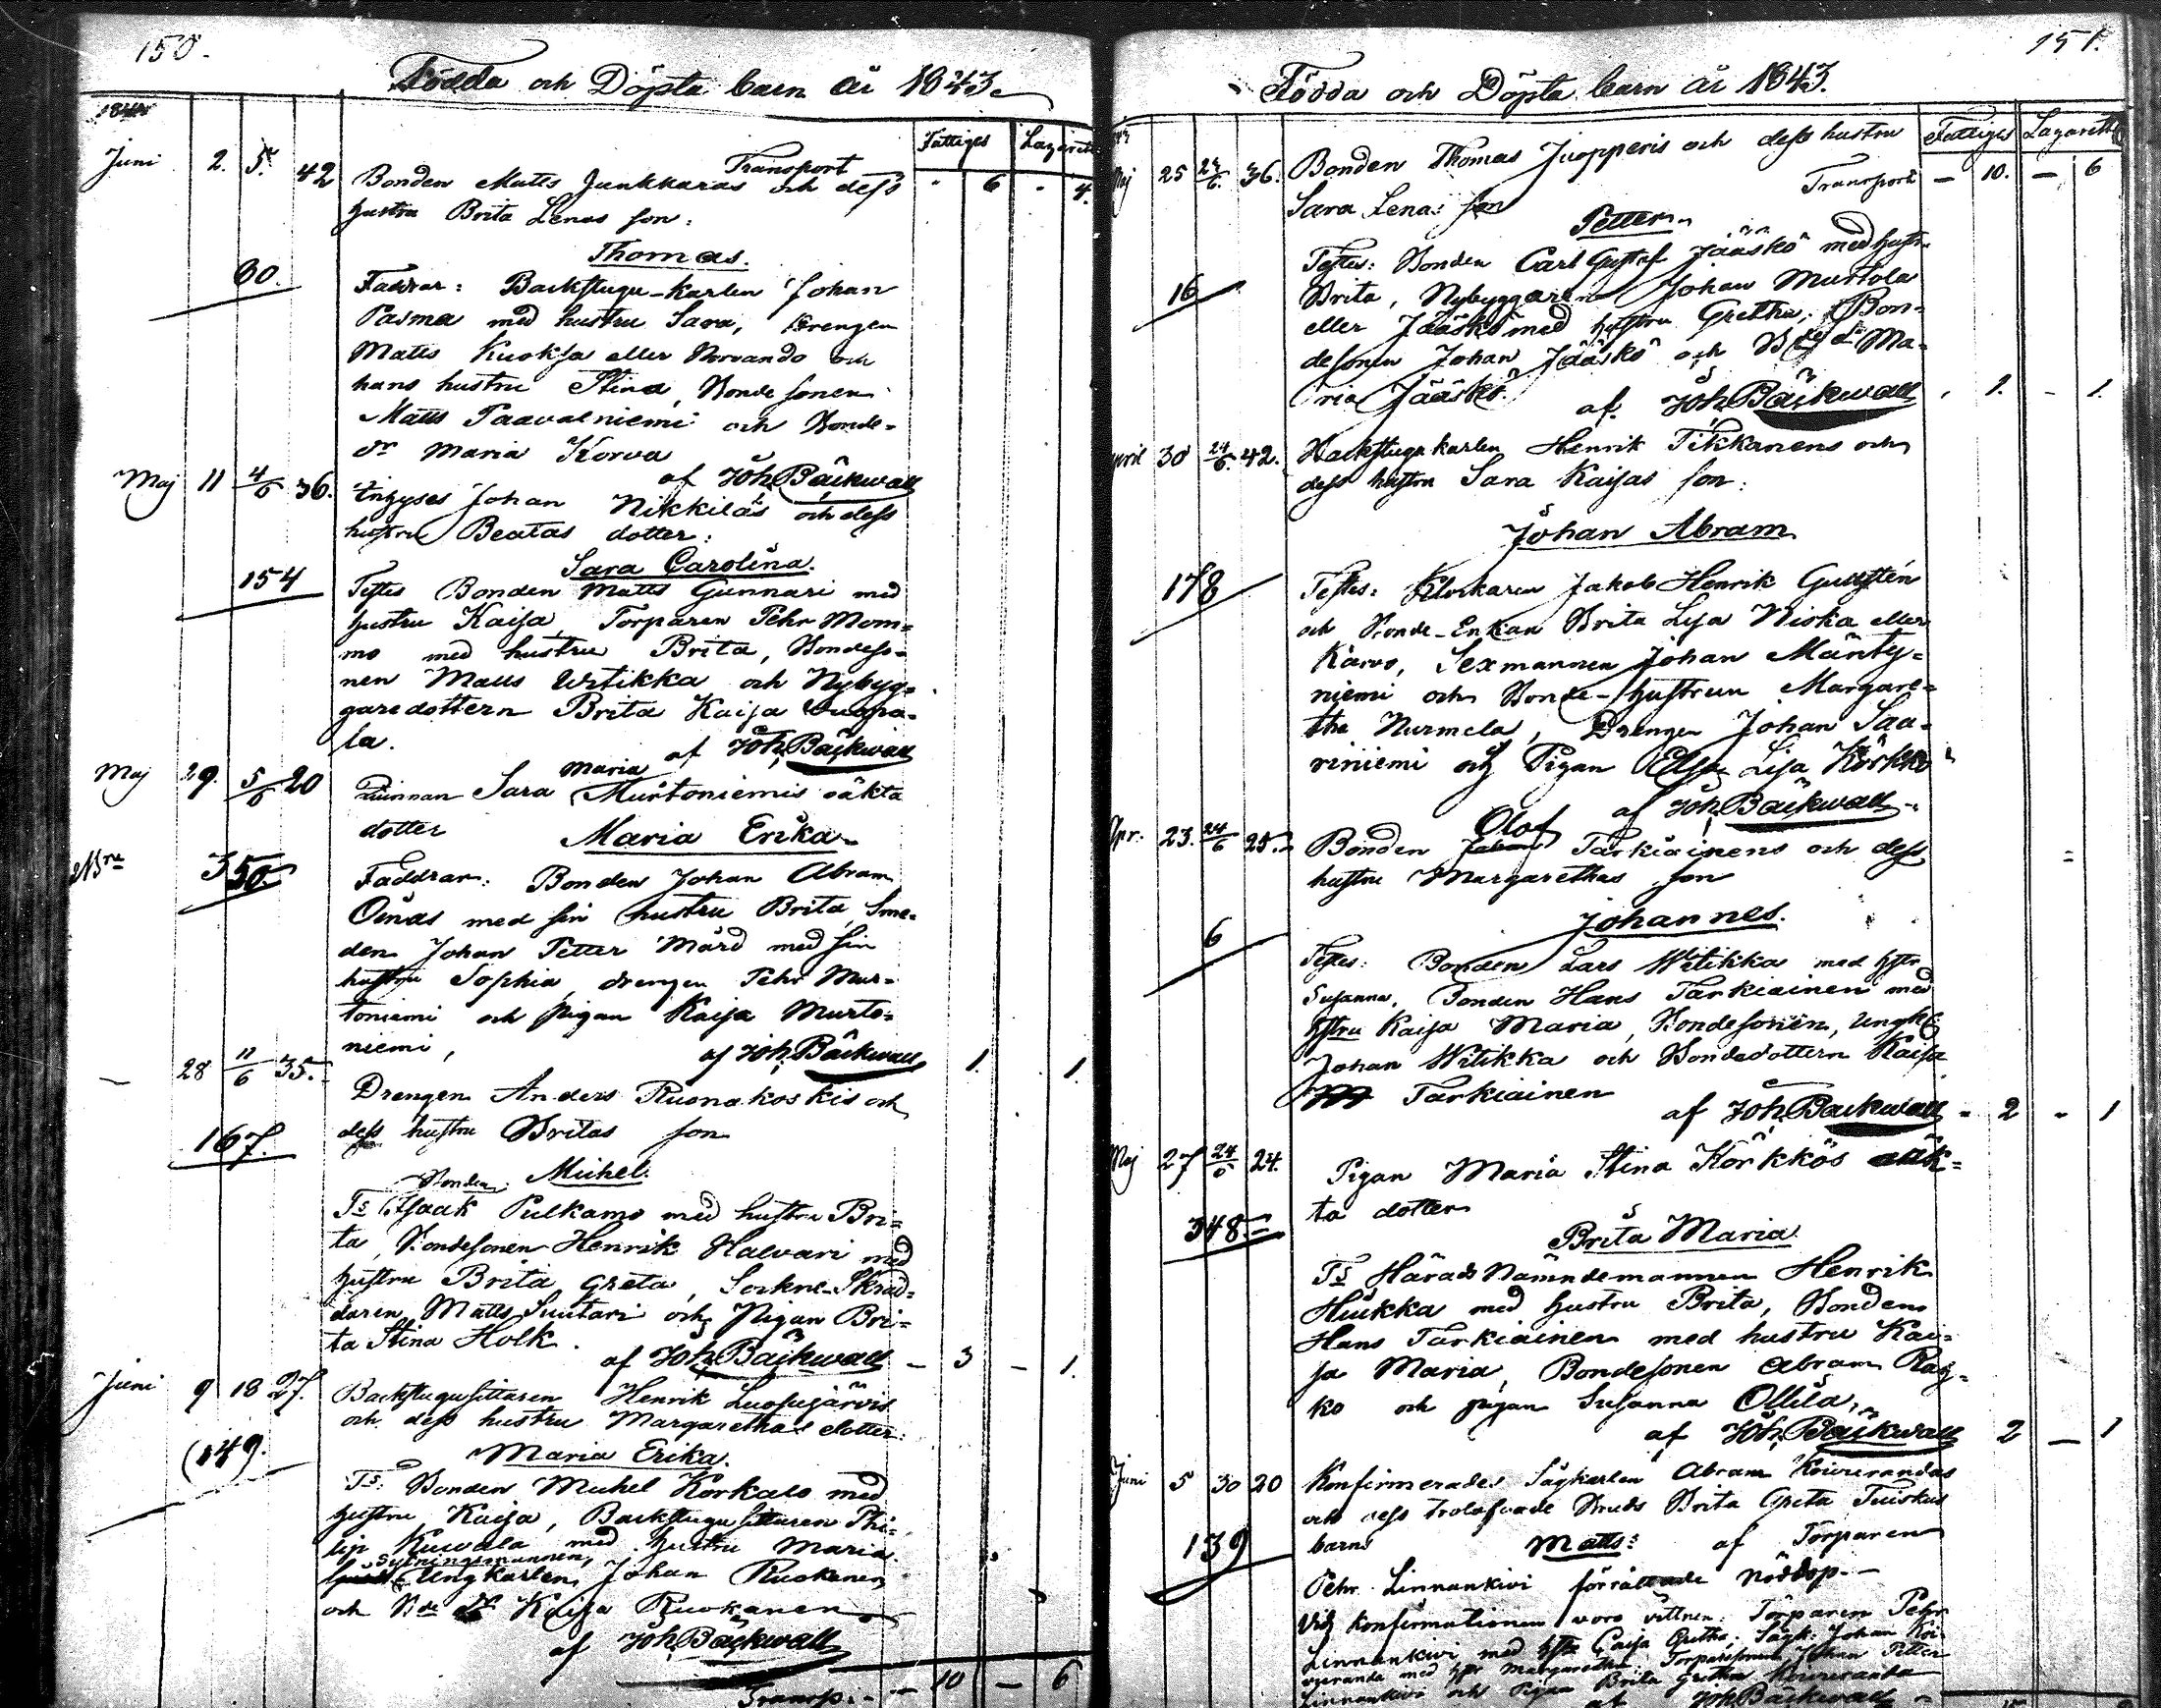 150.
Födda och Döpta barn år 1843.
Fattiges Lazarett
Transport
Juni 2. 5. 42 Bonden Matts Junkkaras och dess - 6 - 4.
hustru Brita Lenas son:
Thomas.
30.
Faddrar: Backstugu-karlen Johan
Pasma med hustru Sara, Drengen
Matts Kuoksa eller Norvando och
hans hustru Stina, Bondesonen
Matts Paavalniemi och Bonde-
dr Maria Korva
af Joh. Bäckwall
Maj 11 4/6 36. Inhyses Johan Nikkiläs och dess
hustru Beatas dotter:
Sara Carolina.
154
Testes Bonden Matts Gunnari med
hustru Kaisa, Torparen Pehr Mom-
mo med hustru Brita, Bondeso-
nen Matts Witikka och Nybyg-
garedottern Brita Kaisa
la.
af Joh. Bäckwall
Maj 29. 5/6 20 Qvinnan Sara Maria Murtoniemis oäkta
dotter Maria Erika
350.
Faddrar: Bonden Johan Abram
Oinas med sin hustru Brita, Sme-
den Johan Petter Mård med sin
hustru Sophia, drengen Pehr Mur-
toniemi och pigan Kaisa Murto-
niemi,
af Joh. Bäckwall 1. 1.
- 28 11/6 35. Drengen Anders Ruonakoskis och
dess hustru Britas son
167.
Michel.
Ts Bonden Isaak Pulkamo med hustru Bri-
ta, Bondesonen Henrik Halvari med
hustru Brita Greta, Sockne-Skräd-
daren Matts Suutari och Pigan Bri-
ta Stina Holk.
af Joh. Bäckwall - 3 - 1.
Juni 9 18 27. Backstugusittaren Henrik Luosujärvis
och dess hustru Margarethas dotter:
Maria Erika.
149.
Ts: Bonden Michel Korkalo med
hustru Kaisa, Backstugusittaren Phi-
lip Kuvala med hustru Maria
Sytningsmannen,
Ungkarlen Johan Ruokanen
och Bde dr Kaisa Ruokanen
af Joh. Bäckwall
Transp. - 10 - 6
151.
Födda och Döpta barn år 1843.
Fattiges Lazarett
Maj 25 24/6. 36. Bonden Thomas Juopperis och dess hustru
Transport - 10. - 6
Sara Lenas son
Petter
Testes: Bonden Carl Gustaf Jääskö med hustr.
16
Brita, Nybyggaren Johan Murtola
eller Jääskö med hustru Gretha, Bon-
desonen Johan Jääskö och Bde dr Ma-
ria Jääskö.
af. Joh. Bäckwall 1. - 1.
April 30 24/6. 42. Backstugukarlen Henrik Tikkanens och
dess hustru Sara Kaisas son:
Johan Abram
178
Testes: Klockaren Jakob Henrik Gullstén
och Bonde-Enkan Brita Lisa Niska eller
Karvo, Sexmannen Johan Mänty-
niemi och Bonde-hustrun Margare-
tha Nurmela, Drengen Johan Saa-
riniemi och Pigan Elsa Lisa Körkkö
af Joh. Bäckwall
Apr. 23. 24/6 25. Bonden Olof Tarkiainens och dess
hustru Margarethas son
Johannes.
6
Testes: Bonden Lars Witikka med hstr
Susanna, Bonden Hans Tarkiainen med
hstru Kaisa Maria, Bondesonen, Ungk.
Johan Witikka och Bondedottern Kaisa
Tarkiainen
af Joh. Bäckwall - 2 - 1
Maj 27 24/6 24. Pigan Maria Stina Körkkös oäk-
ta dotter
348.
Brita Maria
Ts Härads Nämndemannen Henrik
Hiukka med hustru Brita, Bonden
Hans Tarkiainen med hustru Kai-
sa Maria, Bondesonen Abram Rai-
ko och pigan Susanna Ollila,
af Joh. Bäckwall 2 - 1
Juni 5 30 20 Konfirmerades Sågkarlen Abram Koivurandas
och dess trolofvade Bruds Brita Greta Tuiskus
139
barns Matts: af Torparen
Pehr Linnankivi förrättade nöddop.-
Vid konfirmationen voro vittnen: Torparen Pehr
Linnankivi med hstr Caisa Gretha, Sågk. Johan Koi-
vuranda med hstr Margaretha, Torparesonen Johan Petter
Linnankivi och Pigan Brita Gretha Koivuranda
af Joh. Bäckwall